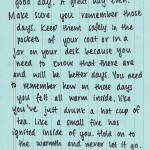 good day. A great day even.
Make sure you remember those
days. Keep them safely in the
pockets of your coat or in a
jar on your desk because you
need to know that there are
and will be better days. You need
to remember how on those days
you felt all warm inside, like
you've just drunk a hot cup of
tea. Like a small fire has
ignited inside of you. Hold on to
the warmth and never let it go.